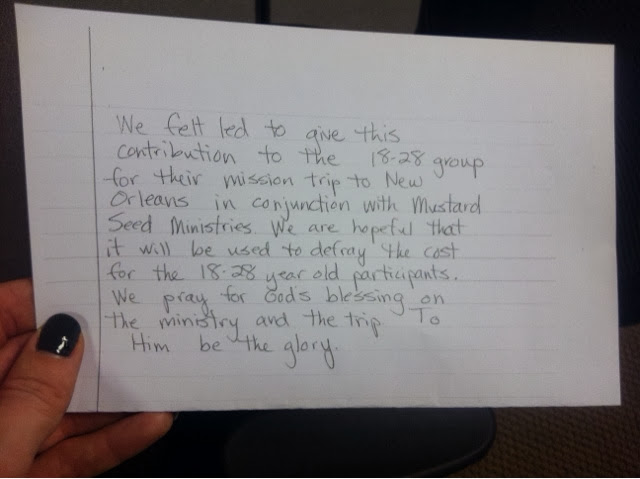 We felt led to give this
contribution to the 18-28 group
for their mission trip to New
Orleans in conjunction with Mustard
Seed Ministries. We are hopeful that
it will be used to defray the cost
for the 18-28 year old participants.
We pray for God's blessing on
the ministry and the trip To
Him be the glory.